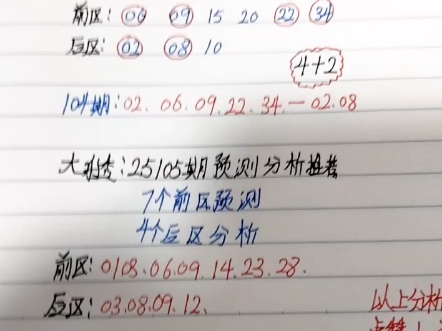 前区: 06 09 15 20 22 34
后区: 02 08 10
4+2
104期:02.06.09.22.34.—02.08
大乐透:25105期预测分析推荐
7个前区预测
4个后区分析
前区: 0108.06.09.14.23.28.
后区: 03.08.09.12.
以上分析